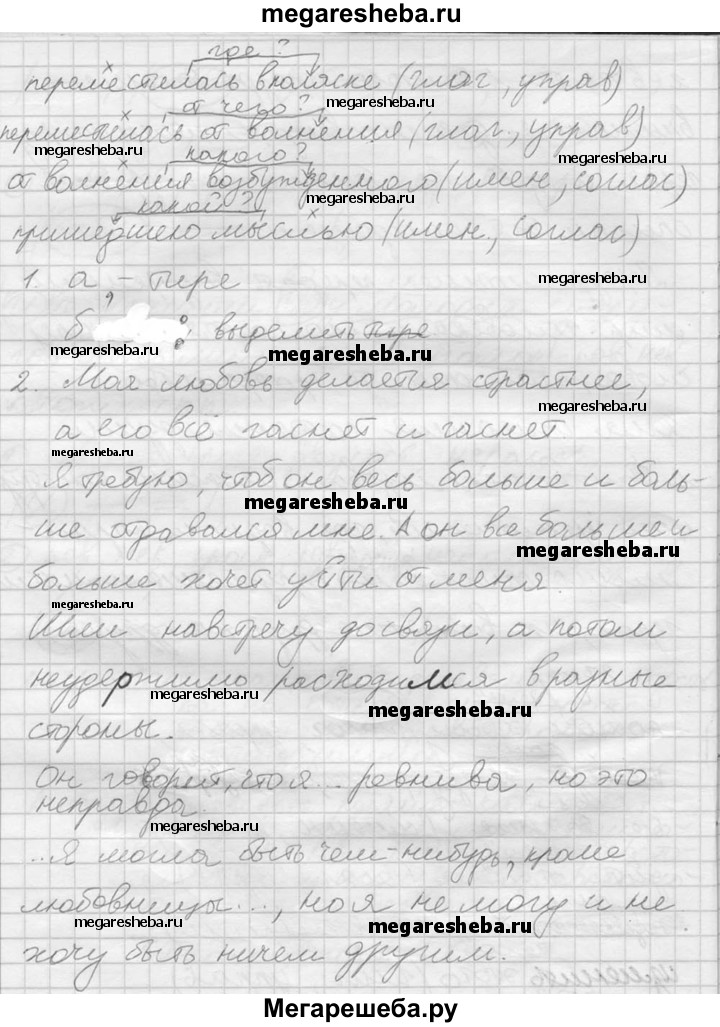 megaresheba.ru
где?
переместилась в коляске (глаг, управ)
от чего? megaresheba.ru
переместилась от волнения (глаг., управ)
megaresheba.ru какого? megaresheba.ru
от волнения возбужденного (имен, соглас)
какой? megaresheba.ru
пришедшею мыслью (имен., соглас)
1. а , - тире megaresheba.ru
б : выделить тире
megaresheba.ru megaresheba.ru
2. Моя любовь делается страстнее,
megaresheba.ru
а его всё гаснет и гаснет.
megaresheba.ru
Я требую, чтоб он весь больше и боль-
megaresheba.ru
ше отдавался мне. А он все больше и
megaresheba.ru
больше хочет уйти от меня.
megaresheba.ru
Шли навстречу до связи, а потом
неудержимо расходимся в разные
megaresheba.ru
megaresheba.ru
стороны.
Он говорит, что я... ревнива, но это
неправда.
megaresheba.ru
...Я могла быть чем-нибудь, кроме
megaresheba.ru
любовницы..., но я не могу и не
megaresheba.ru megaresheba.ru
хочу быть ничем другим.
Мегарешеба.ру